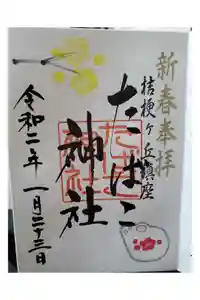 新春奉拝
桔梗ヶ丘鎮座
たばこ
神社
令和二年 一月二十三日